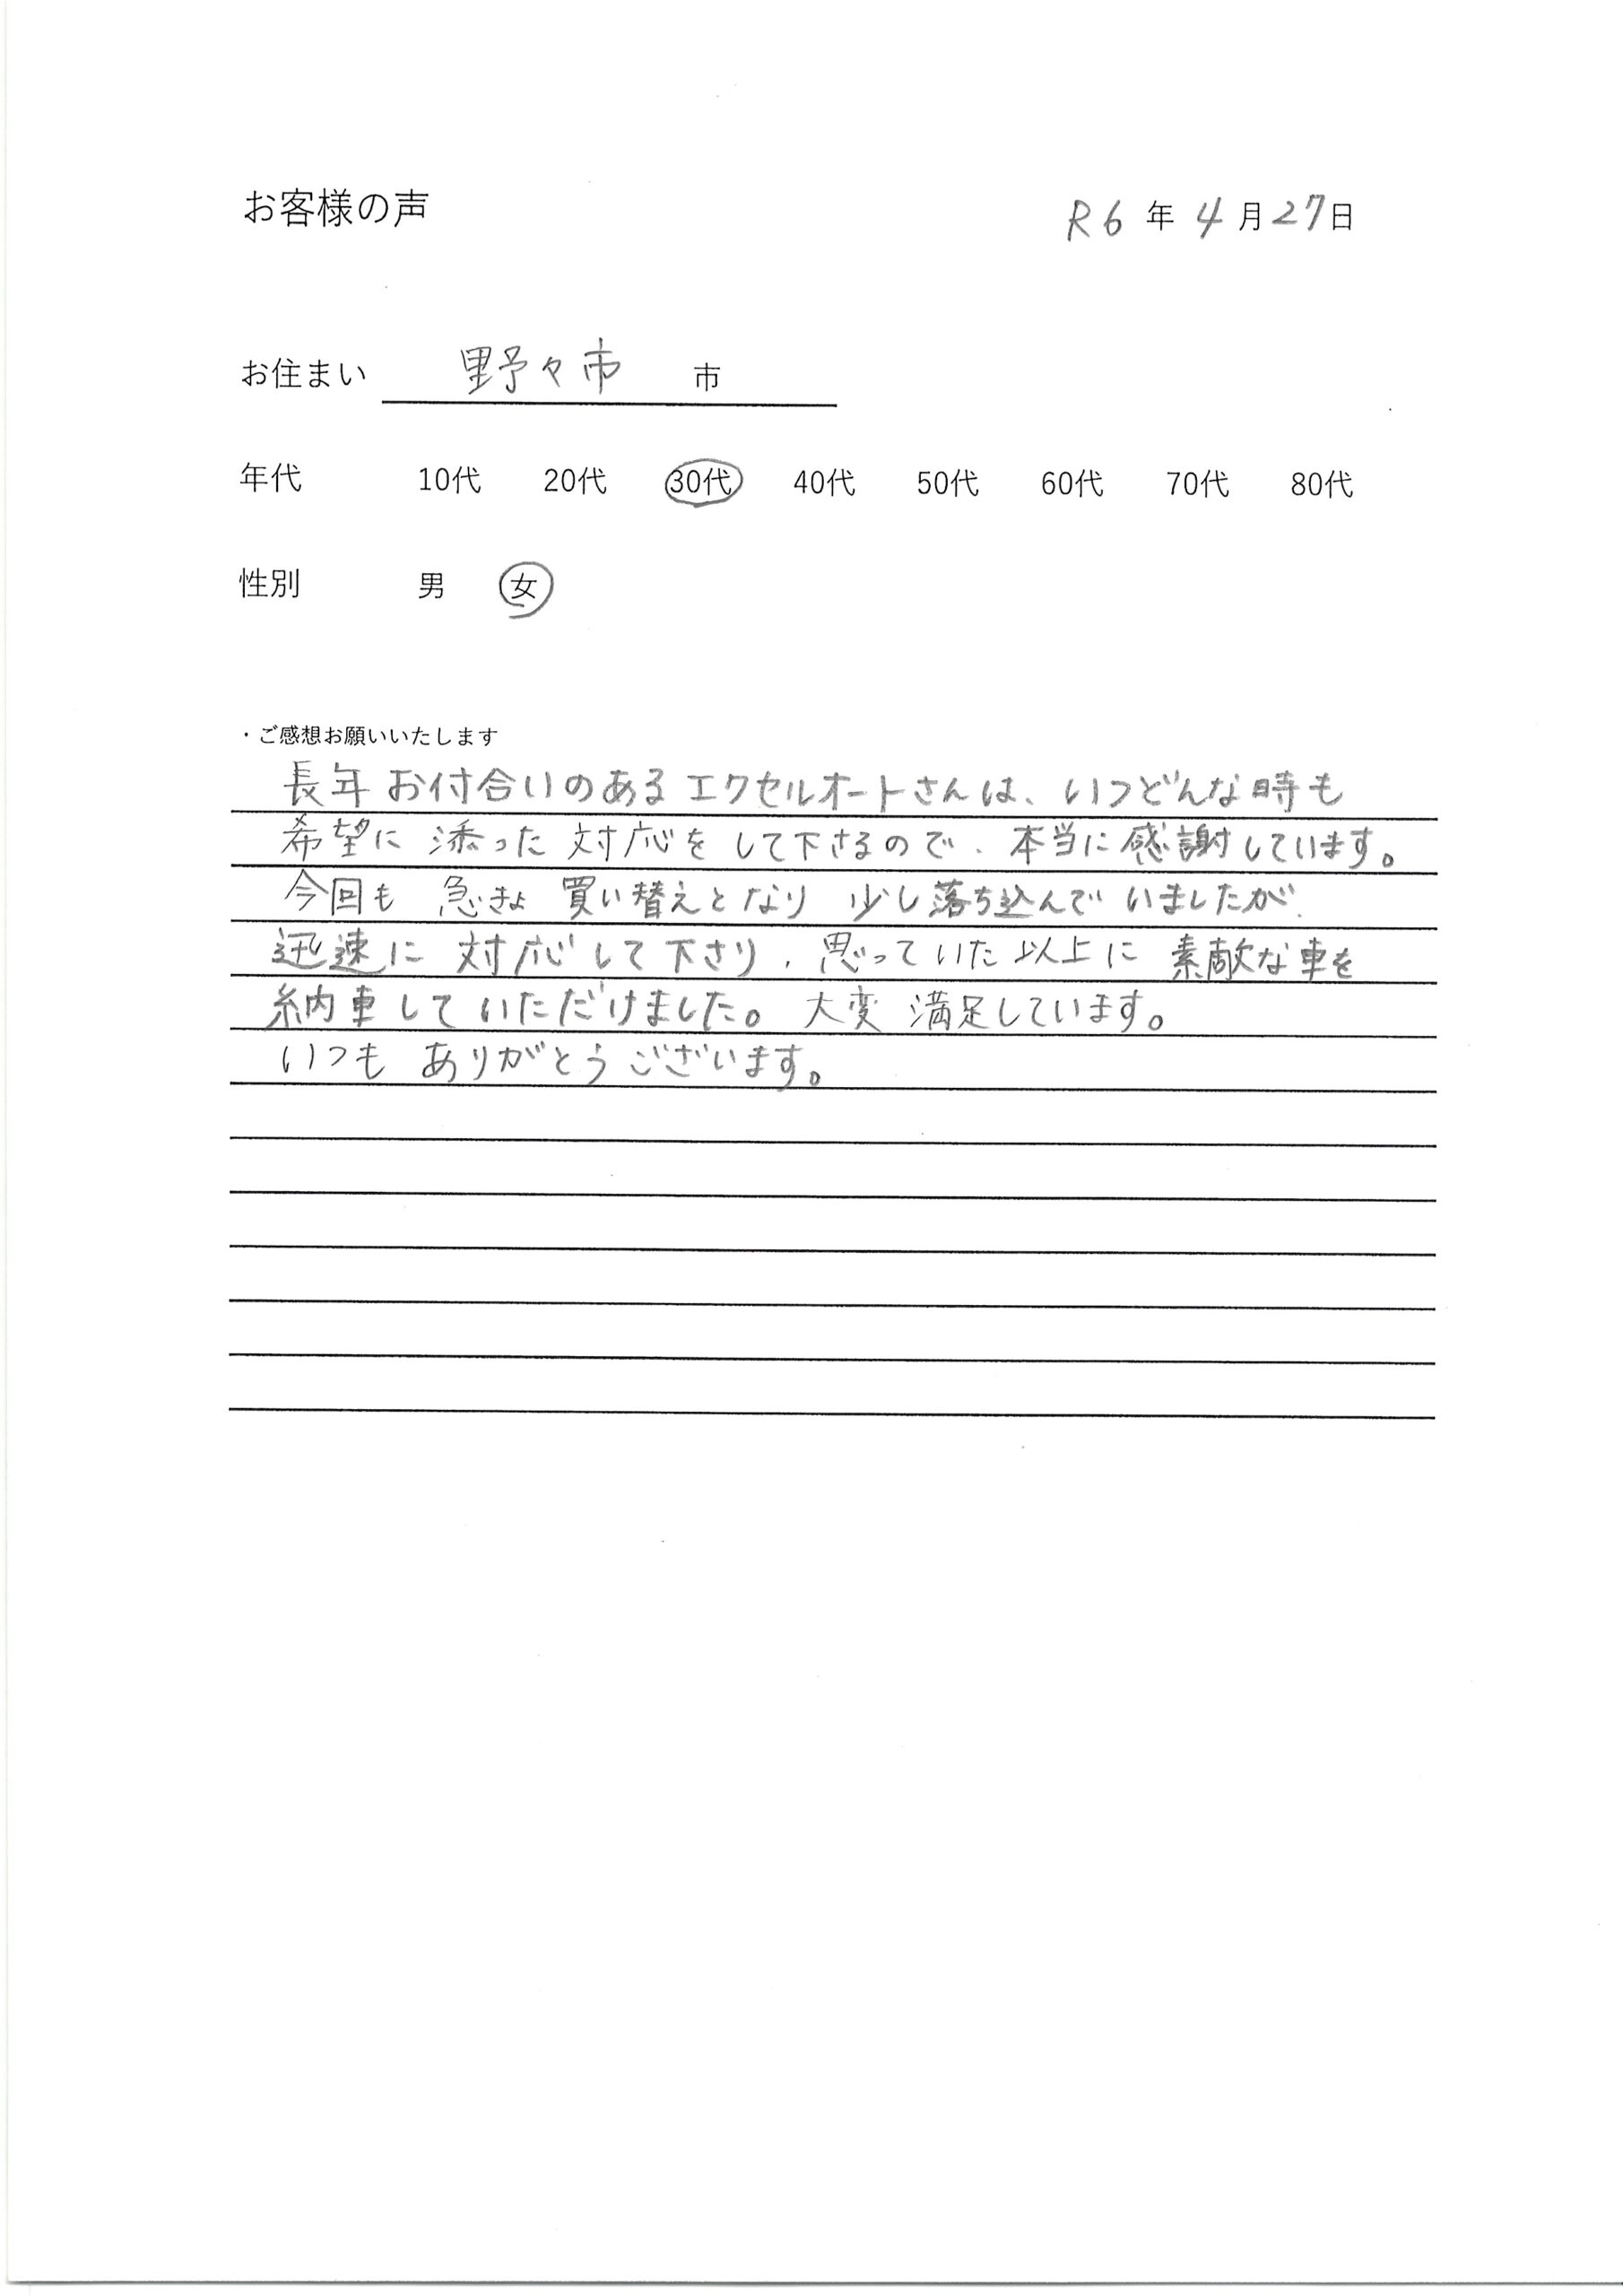 お客様の声
R6年4月27日
お住まい 野々市 市
年代 10代 20代 30代 40代 50代 60代 70代 80代
性別 男 女
・ご感想お願いいたします
長年お付合いのあるエクセルオートさんは、いつどんな時も
希望に添った対応をして下さるので、本当に感謝しています。
今回も急きょ買い替えとなり少し落ち込んでいましたが、
迅速に対応して下さり、思っていた以上に素敵な車を
納車していただけました。大変満足しています。
いつもありがとうございます。